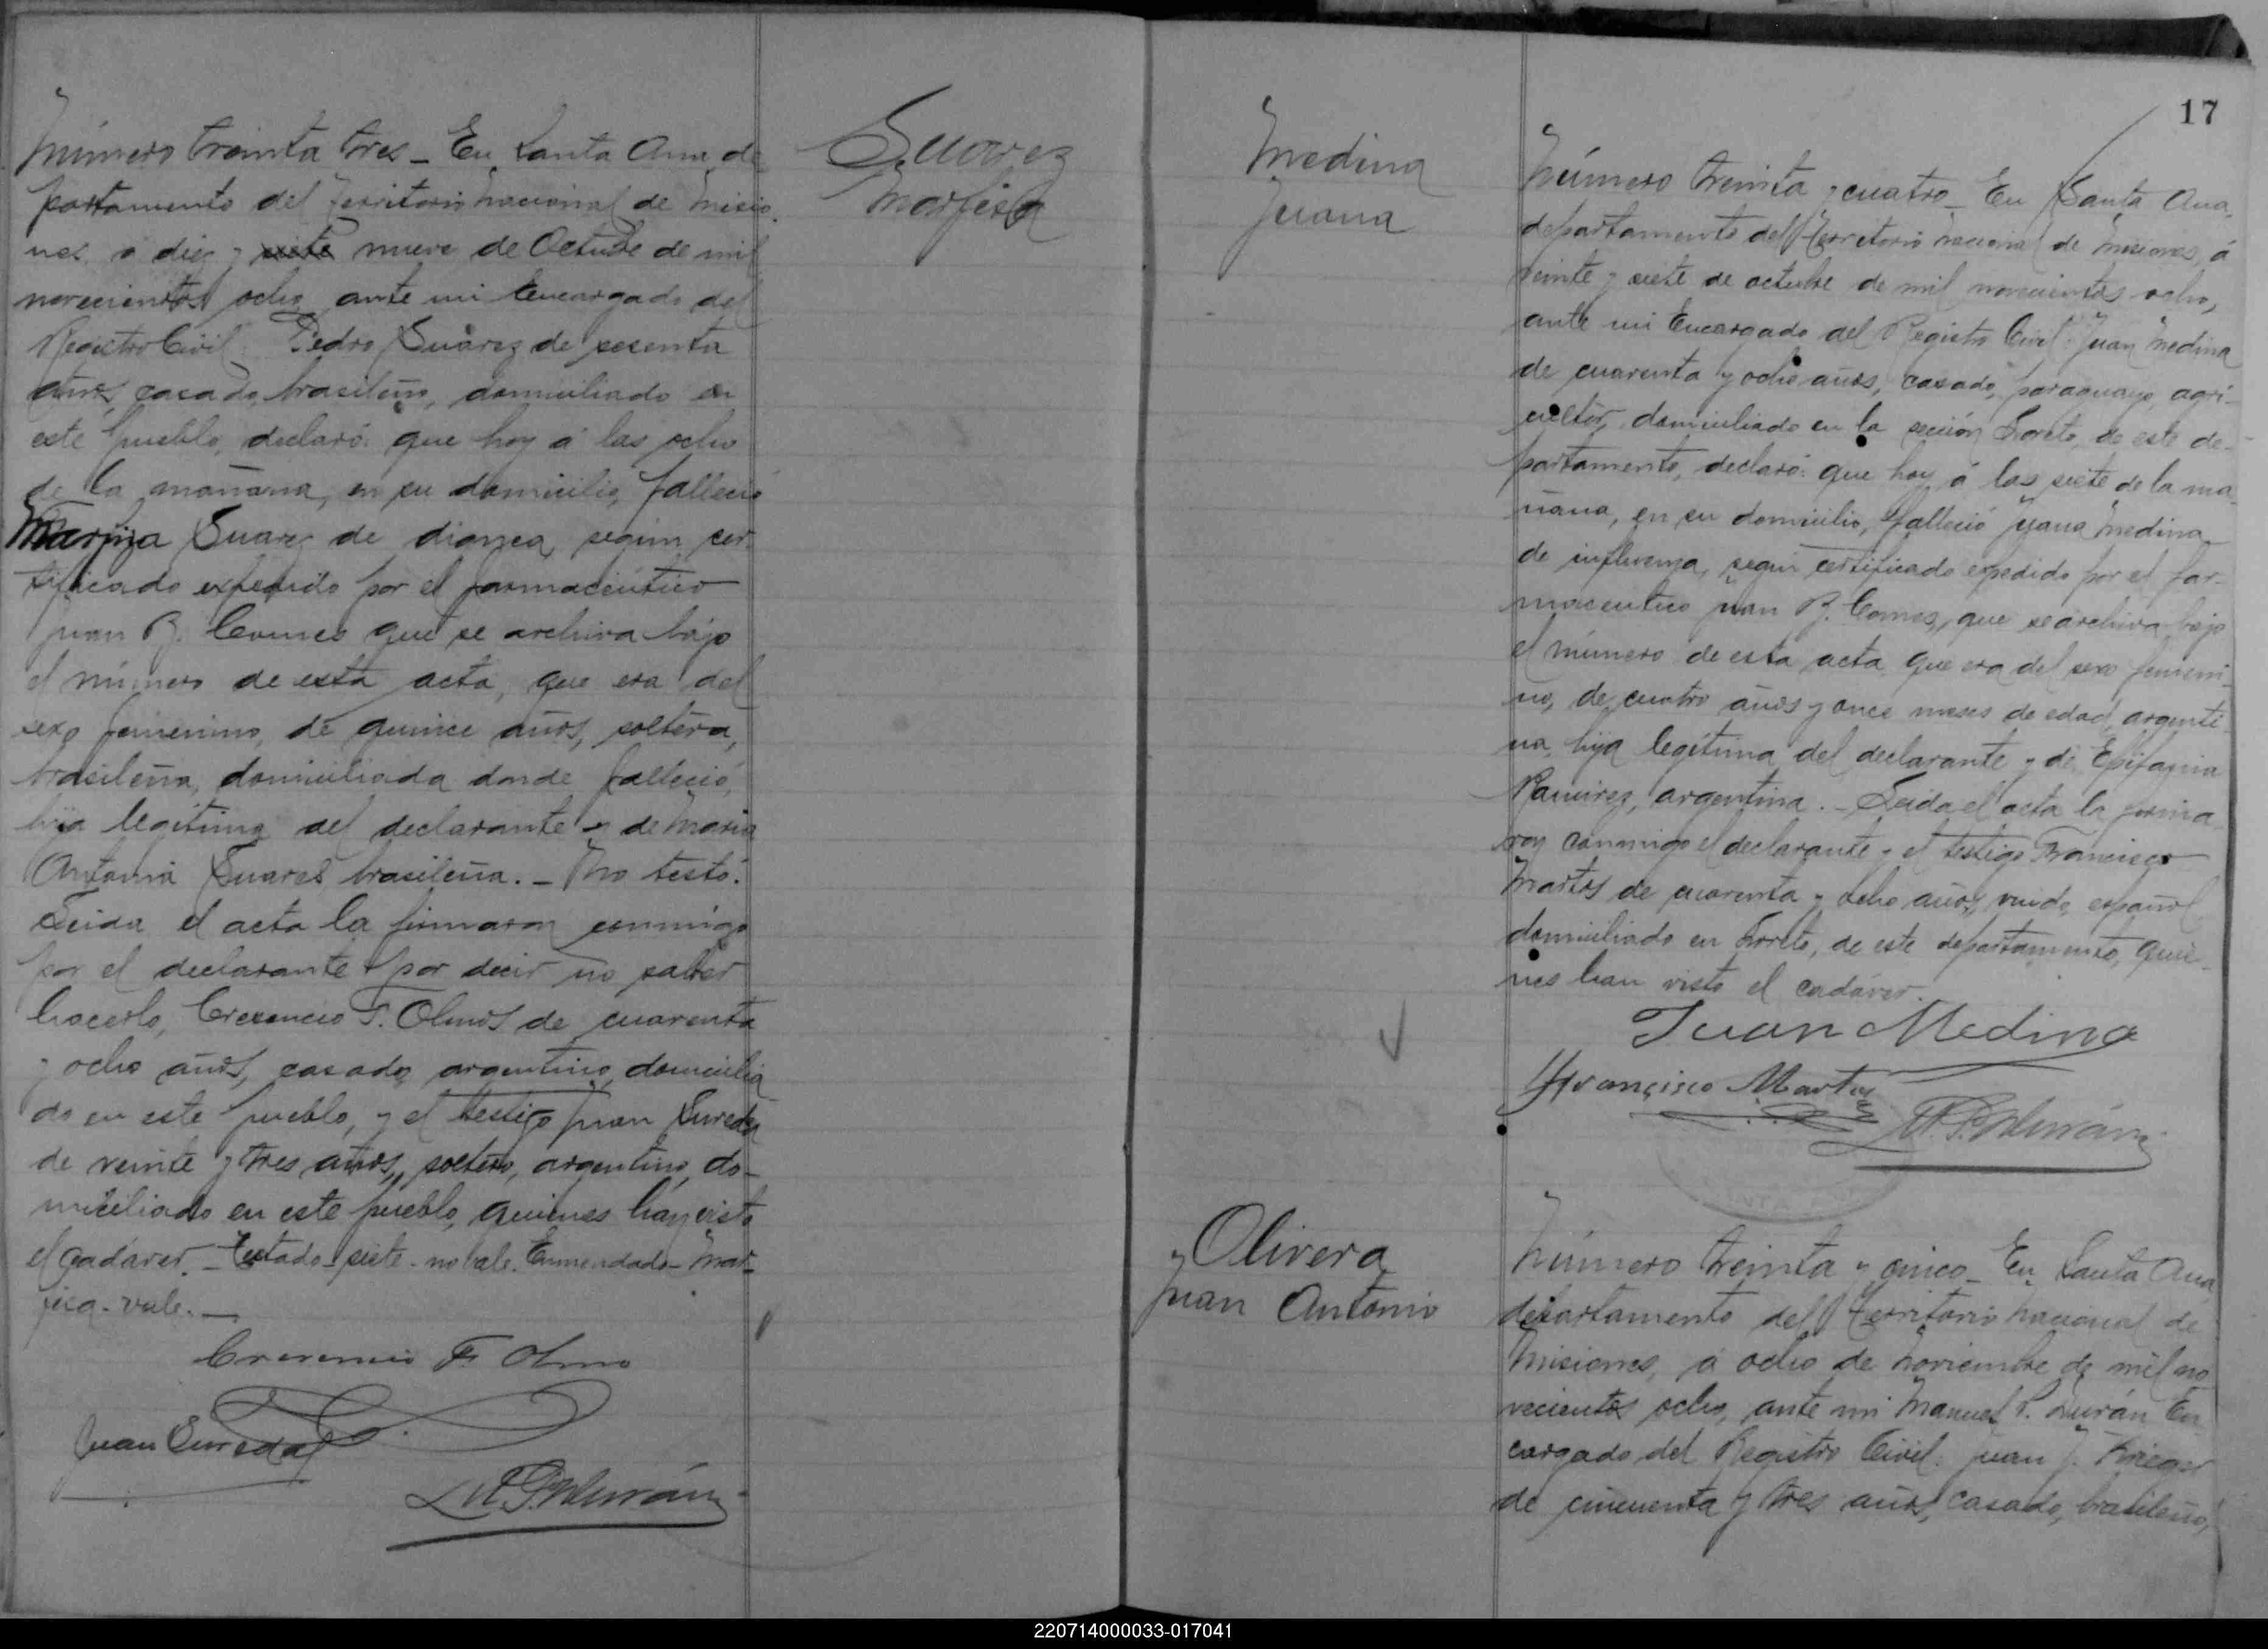 Suarez
Marfisa
Número treinta tres – En Santa Ana de
partamento del Territorio Nacional de Misio
nes, a diez y siete nueve de Octubre de mil
novecientos ocho, ante mi Encargado del
Registro Civil: Pedro Suárez de sesenta
años, casado, brasileño, domiciliado en
este pueblo, declaró: que hoy á las ocho
de la mañana, en su domicilio, falleció
Marfiza Suarez de diarrea, según cer
tificado expedido por el farmacéutico
Juan B. Comes que se archiva bajo
el número de esta acta, que era del
sexo femenino, de quince años, soltera,
brasileña, domiciliada donde falleció,
hija legítima del declarante y de María
Antonia Suares brasileña. – No testó.
Leida el acta la firmaron conmigo
por el declarante por decir no saber
hacerlo, Cresencio F. Olmos de cuarenta
y ocho años, casado, argentino, domicilia
do en este pueblo, y el testigo Juan Sureda
de veinte y tres años, soltero, argentino, do–
miciliado en este pueblo, quienes han visto
el cadáver. – Testado – siete – no vale. Enmendado – Mar–
fisa – vale. –
Cresencio F Olmo
Juan Sureda
17
Medina
Juana
Número treinta y cuatro – En Santa Ana,
departamento del Territorio Nacional de Misiones, á
veinte y siete de octubre de mil novecientos ocho,
ante mi Encargado del Registro Civil: Juan Medina
de cuarenta y ocho años, casado, paraguayo, agri–
cultor, domiciliado en la sección Loreto, de este de–
partamento, declaró: que hoy á las siete de la ma
ñana, en su domicilio, falleció Juana Medina
de influenza, según certificado expedido por el far–
macéutico Juan B. Comes, que se archiva bajo
el número de esta acta, que era del sexo femeni
no, de cuatro años y once meses de edad, argenti
na, hija legítima del declarante y de Epifania
Ramirez, argentina. – Leida el acta la firma
ron conmigo el declarante y el testigo Francisco
Martos de cuarenta y ocho años, viudo, español,
domiciliado en Loreto, de este departamento, quie–
nes han visto el cadáver.
Juan Medina
Francisco Martos
Olivera
Juan Antonio
Número treinta y cinco – En Santa Ana
departamento del Territorio Nacional de
Misiones, á ocho de Noviembre de mil no
vecientos ocho, ante mi Manuel P. Durán En
cargado del Registro Civil: Juan J. Krieger
de cincuenta y tres años, casado, brasileño,
220714000033-017041